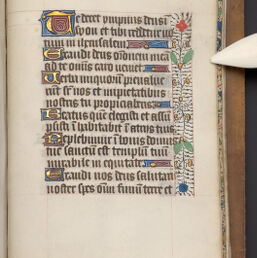 Te decet ympnus deus i
syon et tibi reddetur uo
tum in iherusalem
Exaudi deus orōnem meā
ad te omīs caro ueniet
Uerba iniquorū preualue
runt sr̄ nos et impietatibus
nostris tu propiciaberis
Beatus quē elegisti et assū
psisti īhabitabit ī atriis tuis
Replebimur ī bonis domus
tue sanctū est templū tuū
mirabile in equitate
Exaudi nos deus salutari
noster spes oīm finiū terre et